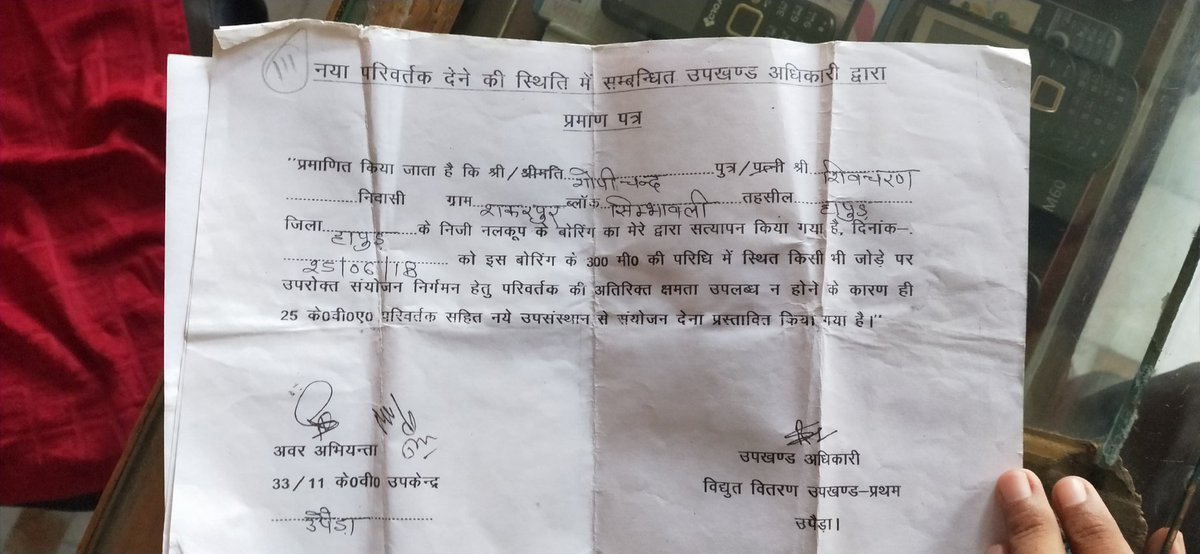 111
नया परिवर्तक देने की स्थिति में सम्बन्धित उपखण्ड अधिकारी द्वारा
प्रमाण पत्र
"प्रमाणित किया जाता है कि श्री/श्रीमति गोपीचन्द पुत्र/पत्नी श्री शिवचरण
निवासी ग्राम शकरपुर ब्लॉक सिम्भावली तहसील हापुड़
जिला हापुड़ के निजी नलकूप के बोरिंग का मेरे द्वारा सत्यापन किया गया है, दिनांक–
25/06/18 को इस बोरिंग के 300 मी0 की परिधि में स्थित किसी भी जोड़े पर
उपरोक्त संयोजन निर्गमन हेतु परिवर्तक की अतिरिक्त क्षमता उपलब्ध न होने के कारण ही
25 के0वी0ए0 परिवर्तक सहित नये उपसंस्थान से संयोजन देना प्रस्तावित किया गया है।"
अवर अभियन्ता
33/11 के0वी0 उपकेन्द्र
उपैड़ा
उपखण्ड अधिकारी
विद्युत वितरण उपखण्ड–प्रथम
उपैड़ा।
M60